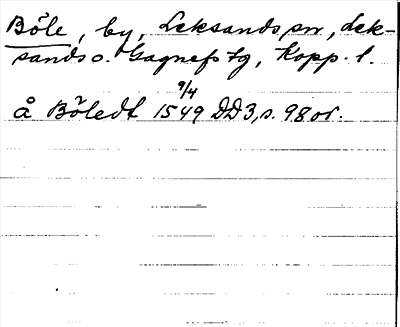 Böle, by, Leksands sn, Lek-
sands o. Gagnefs tg, Kopp. l.
9/4
å Böledt 1549 DD3, s. 98 or.